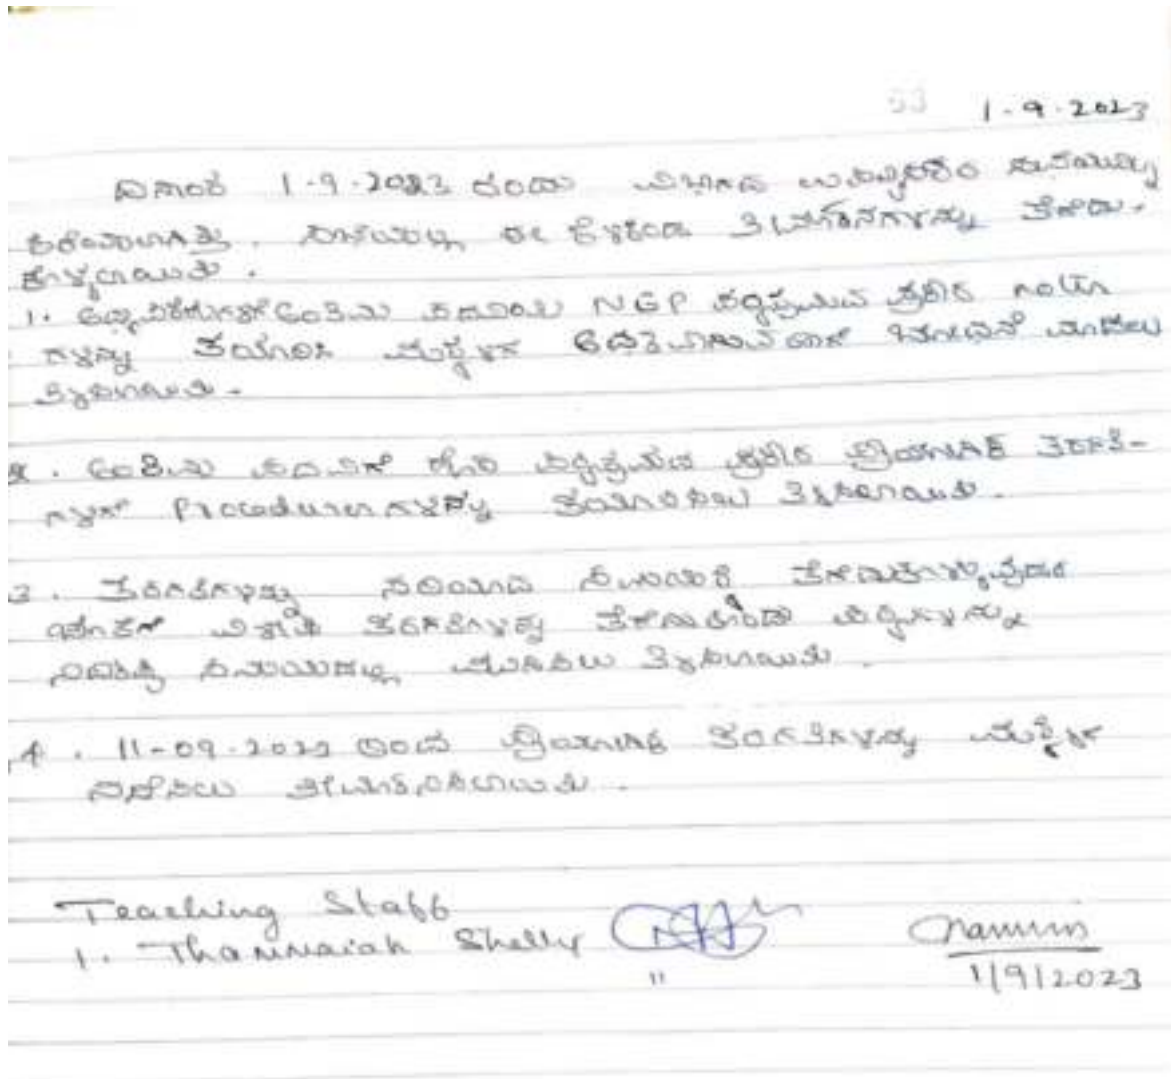 1-9-2023
ದಿನಾಂಕ 1-9-2023 ರಂದು ವಿಭಾಗದ ಸಭೆಯನ್ನು
ಕರೆಯಲಾಗಿತ್ತು. ಸಭೆಯಲ್ಲಿ ಈ ಕೆಳಕಂಡ ತೀರ್ಮಾನಗಳನ್ನು ತೆಗೆದು-
ಕೊಳ್ಳಲಾಯಿತು.
1. ಅಂತಿಮ ಪದವಿಯ NGP ಪಠ್ಯಕ್ರಮದ ಪ್ರಕಾರ
ಗಳನ್ನು ತಯಾರಿಸಿ ಮಕ್ಕಳಿಗೆ ಅರ್ಥವಾಗುವ ಹಾಗೆ ಬೋಧನೆ ಮಾಡಲು
ತಿಳಿಸಲಾಯಿತು.
2. ಅಂತಿಮ ಪದವಿಗೆ ಹೊಸ ಪಠ್ಯಕ್ರಮದ ಪ್ರಕಾರ ಪ್ರಾಯೋಗಿಕ ತರಗತಿ-
ಗಳಿಗೆ Procedures ಗಳನ್ನು ತಯಾರಿಸಲು ತಿಳಿಸಲಾಯಿತು.
3. ತರಗತಿಗಳನ್ನು ಸರಿಯಾದ ಸಮಯಕ್ಕೆ ತೆಗೆದುಕೊಳ್ಳುವುದರ
ಜೊತೆಗೆ ವಿಶೇಷ ತರಗತಿಗಳನ್ನು ತೆಗೆದುಕೊಂಡು ಪಠ್ಯಗಳನ್ನು
ಸಮಯದಲ್ಲಿ ಮುಗಿಸಲು ತಿಳಿಸಲಾಯಿತು.
4. 11-09-2023 ರಿಂದ ಪ್ರಾಯೋಗಿಕ ತರಗತಿಗಳನ್ನು ಮಕ್ಕಳಿಗೆ
ನಡೆಸಲು ತೀರ್ಮಾನಿಸಲಾಯಿತು.
Teaching Staff
1. Thammaiah Shelly
1/9/2023